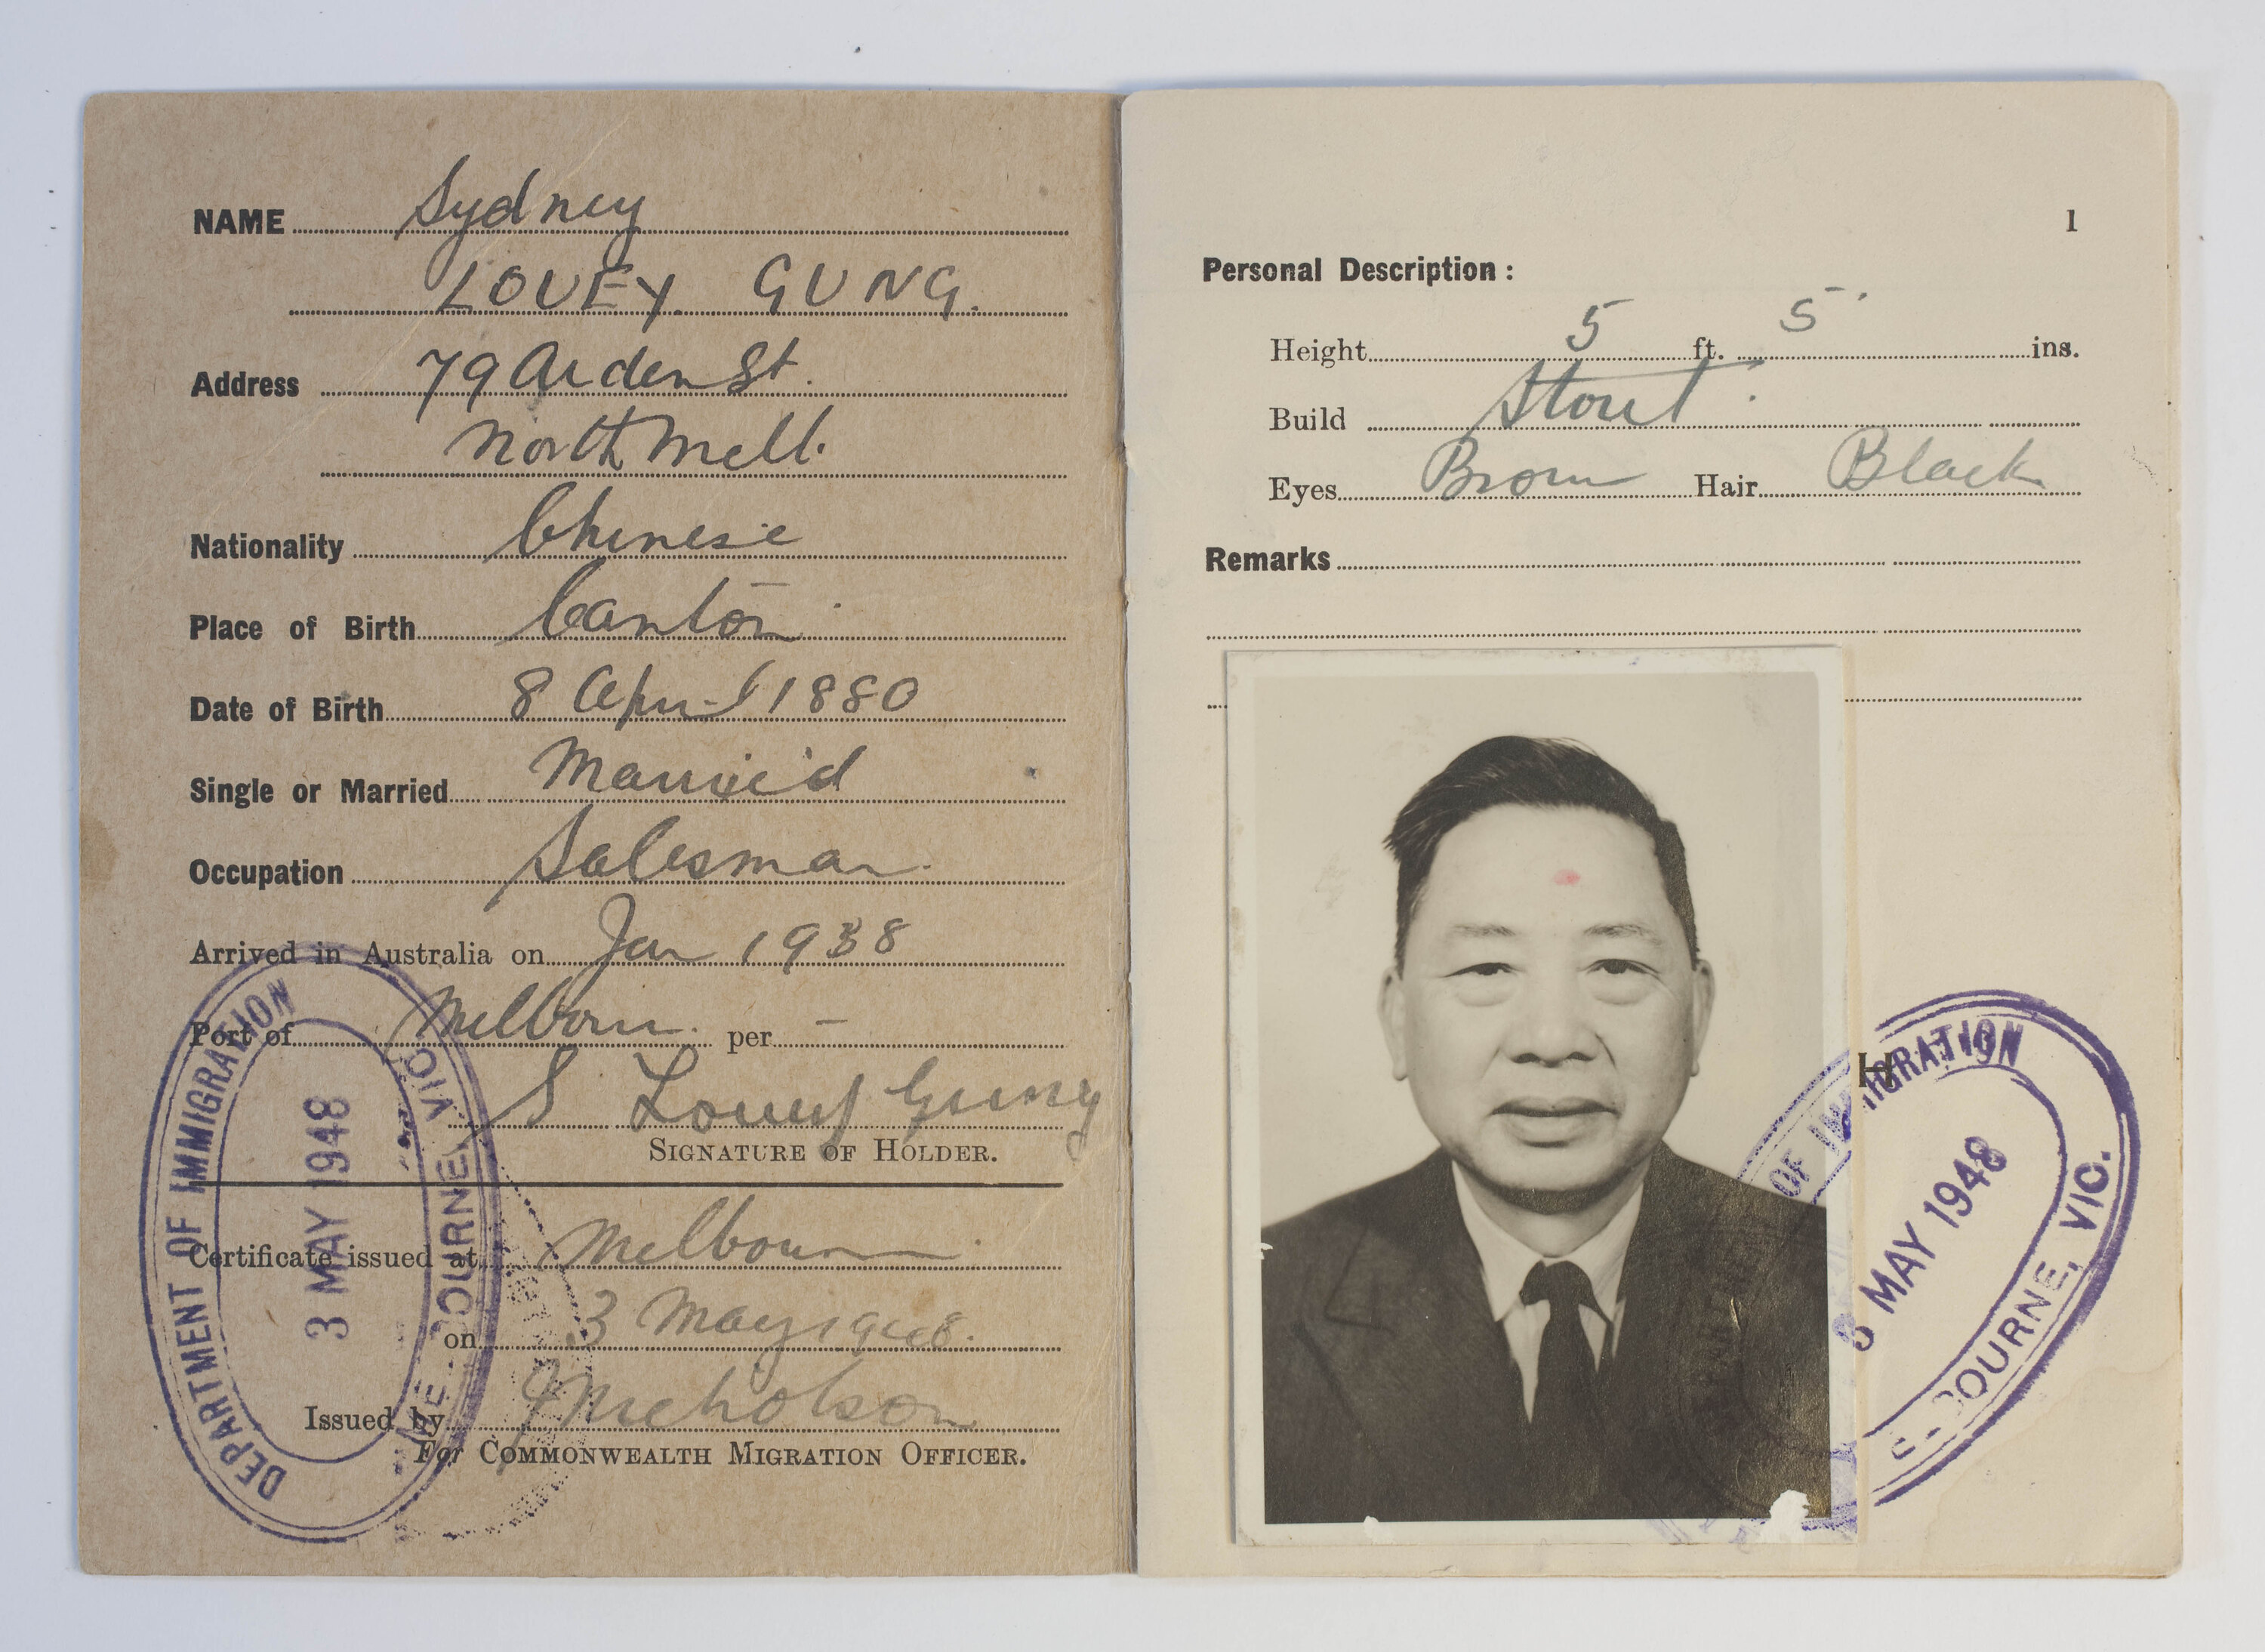 NAME Sydney
LOUEY GUNG.
Address 79 Arden St.
North Melb.
Nationality Chinese
Place of Birth Canton
Date of Birth 8 April 1880
Single or Married Married
Occupation Salesman
Arrived in Australia on Jan 1938
Port of Melbourn. per –
S Louey Gung
SIGNATURE OF HOLDER.
Certificate issued at Melbourn
on 3 May 1948.
Issued by Nicholson
For COMMONWEALTH MIGRATION OFFICER.
DEPARTMENT OF IMMIGRATION
3 MAY 1948
BOURNE, VIC.
1
Personal Description :
Height 5 ft. 5 ins.
Build Stout
Eyes Brown Hair Black
Remarks
H
OF IMMIGRATION
3 MAY 1948
BOURNE, VIC.